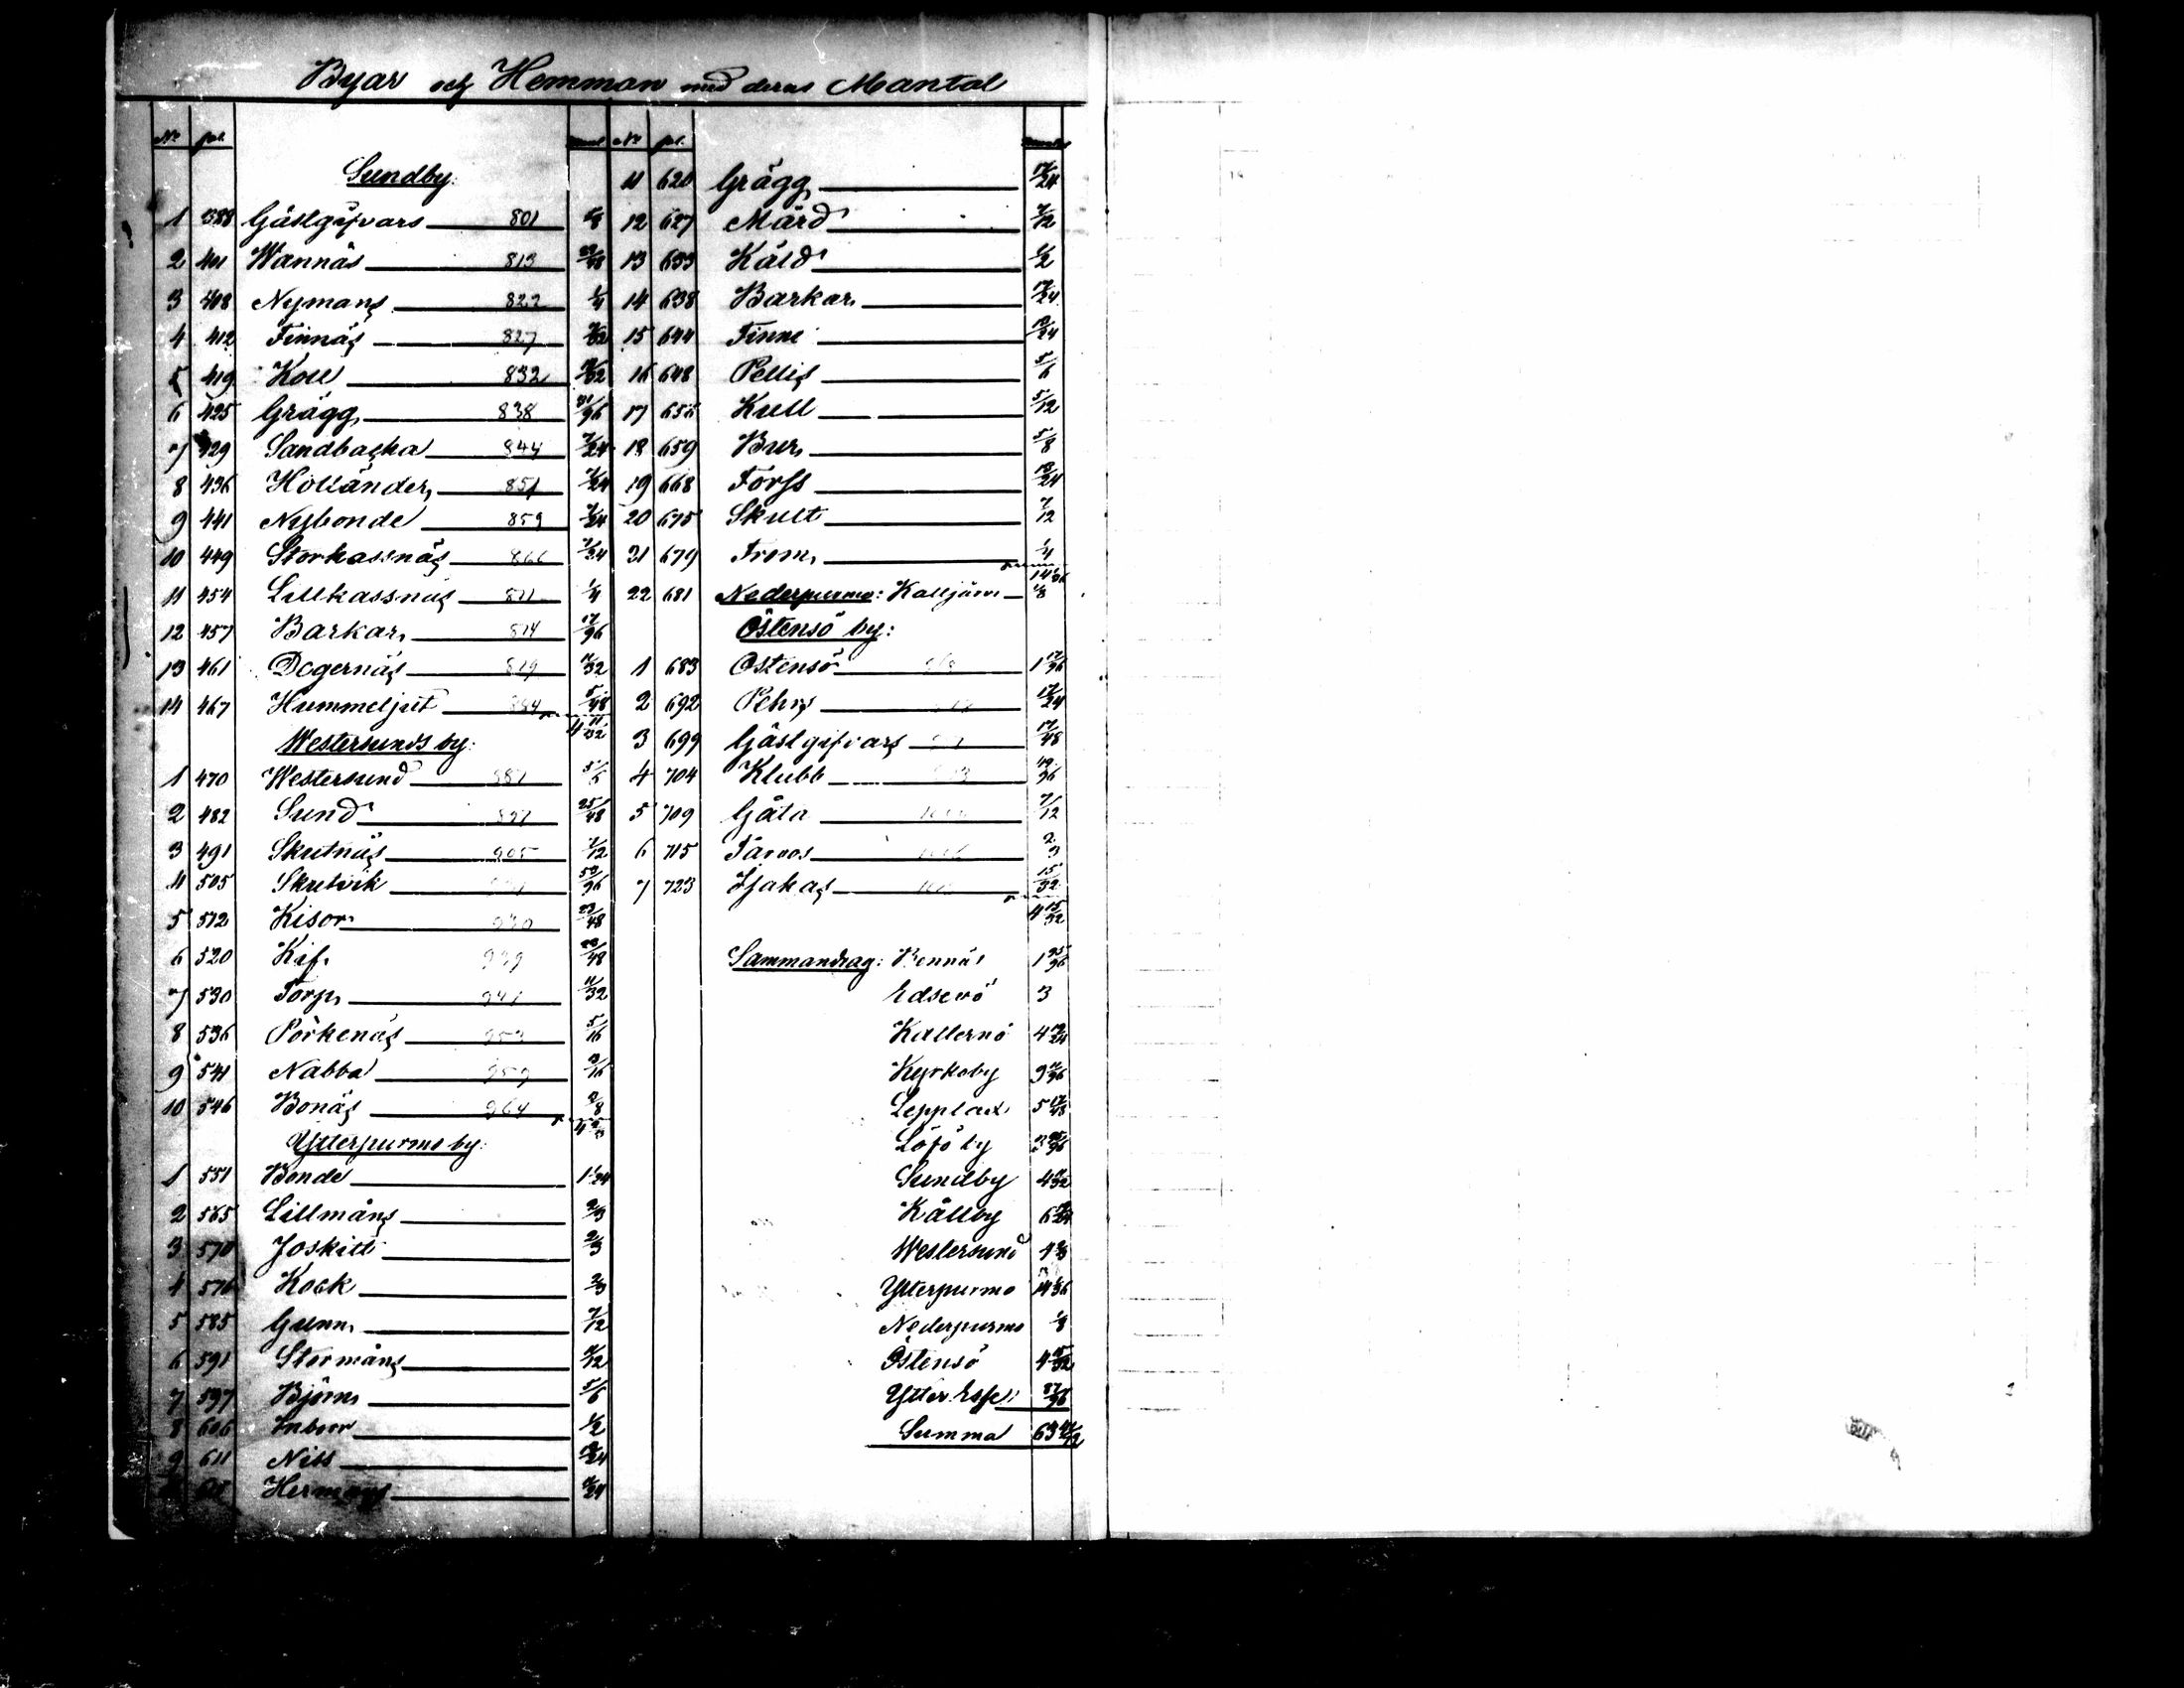 Byar och Hemman med deras Mantal
No fol. Mantal
Sundby:
1 388 Gästgifvars 801 5/8
2 401 Wännäs 813
3 408 Nymans 822 1/4
4 412 Finnäs 827
5 419 Koll 832
6 425 Grägg 838
7 429 Sandbacka 844 7/24
8 436 Holländer 851 7/24
9 441 Nybonde 859 7/24
10 449 Storkassnäs 866 7/24
11 454 Lillkassnäs 871 1/4
12 457 Barkar 874 17/96
13 461 Degernäs 879 11/32
14 467 Hummeljut 884 5/48
4 11/32
Westersunds by:
1 470 Westersund 887 5/6
2 482 Sund 897 25/48
3 491 Skutnäs 905 7/12
4 505 Skutvik
5 512 Kisor 930 23/48
6 520 Kif 939
7 530 Torp 947 11/32
8 536 Pörkenäs 953 5/16
9 541 Nabba 959
10 546 Bonäs 964 3/8
4 2/3
Ytterpurmo by:
1 551 Bonde 1 1/24
2 565 Lillmåns 2/3
3 570 Joskitt 2/3
4 576 Kock 2/3
5 585 Gunn 7/12
6 591 Stormåns
7 597 Björn 5/6
8 606 Inborr 1/2
9 611 Nils
Hermans
No fol. Mantal
11 620 Grägg 17/24
12 627 Mård 7/12
13 633 Käld 1/2
14 638 Barkar 17/24
15 644 Finne
16 648 Pellis 5/6
17 655 Kull 5/12
18 659 Bur 5/8
19 668 Forss
20 675 Skult 7/12
21 679 From 1/4
22 681 Nederpurmo: Kalljärv 1/8
Östensö by:
1 683 Östensö 1 17/96
2 692 Pehrs 17/24
3 699 Gästgifvars 17/48
4 704 Klubb 49/96
5 709 Gåta 7/12
6 715 Tarvos 2/3
7 723 Sjakas 15/32
4 15/32
Sammandrag: Bennäs 1 95/96
Edsevö 3
Kallernö
Kyrkoby
Lepplax 5 17/48
Löfö by
Sundby 4 11/32
Källby
Westersund 4 2/3
Ytterpurmo
Nederpurmo 1/8
Östensö 4 15/32
Ytter Esse
Summa